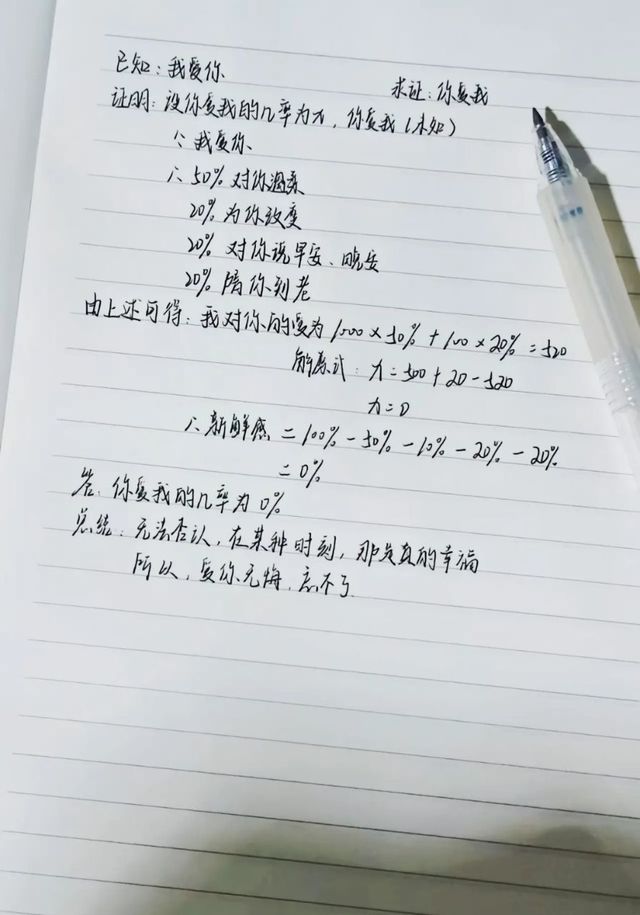 已知：我爱你 求证：你爱我
证明：设你爱我的几率为x，你爱我（未知）
∵ 我爱你
∴ 50% 对你温柔
20% 为你改变
20% 对你说早安、晚安
20% 陪你到老
由上述可得：我对你的爱为1000×50%+100×20%=520
解惑式：x=500+20-520
x=0
∴新鲜感=100%-50%-10%-20%-20%
=0%
答：你爱我的几率为0%
总结：无法否认，在某种时刻，那是真的幸福
所以，爱你无悔，忘不了